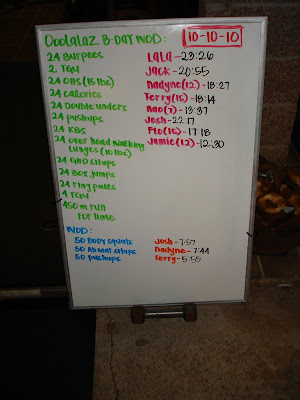 OooLaLaz B-DAY WOD: 10-10-10
24 Burpees LaLa-23:26
2 TGU Jack-20:55
24 OHS (15 lbs) Nadyne(12)-18:27
24 calories Terry(15)-18:14
24 Double unders Rao(7)-13:37
24 pushups Josh-22:17
24 KBS Flo(16)-17:18
24 over head walking Jamie(12)-12:30
lunges (10 lbs)
24 GHD situps
24 Box jumps
24 ring pulls
4 TGU
450 m run
For time
WOD:
50 BODY squats Josh-7:57
50 AbMat situps Nadyne-7:44
50 pushups Terry-5:55